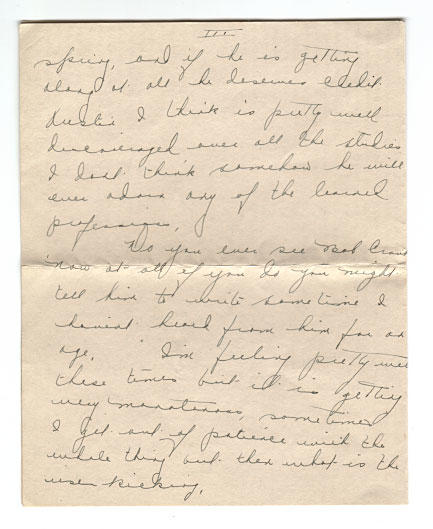 III
spring, and if he is getting
along at all he deserves credit.
Austin I think is pretty well
discouraged over all the studies
I dont think somehow he will
ever adorn any of the learned
professions.
Do you ever see
now at all if you do you might
tell him to write sometime I
havent heard from him for an
age. I'm feeling pretty well
these times but it is getting
very monotonous, sometimes
I get out of patience with the
whole thing but then what is the
use kicking.